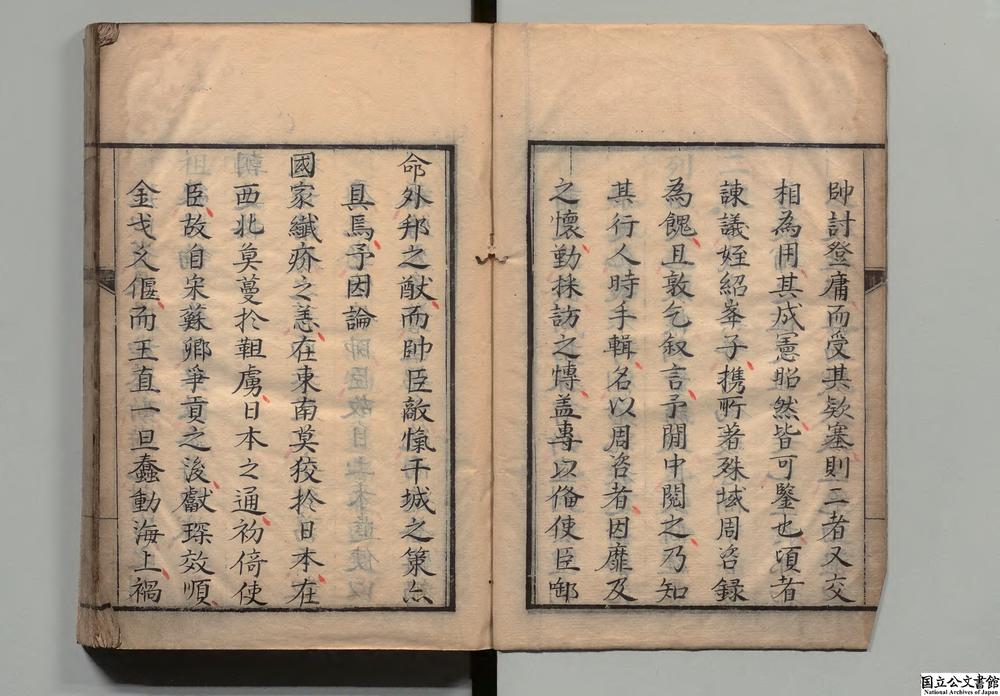 帥討登庸而受其欵塞則二者又交
相為用其成憲昭然皆可鑒也頃者
諫議姪紹峯子携所著殊域周咨錄
為餽且敦乞叙言予閒中閱之乃知
其行人時手輯名以周咨者因靡及
之懷勤採訪之慱盖專以俻使臣啣
命外邦之猷而帥臣敵愾干城之策亦
具焉予因論
國家纖疥之恙在東南莫狡於日本在
西北莫蔓於靼虜日本之通初倚使
臣故自宋蘇卿爭貢之後獻琛效順
金戈久偃而王直一旦蠢動海上禍
国立公文書館
National Archives of Japan